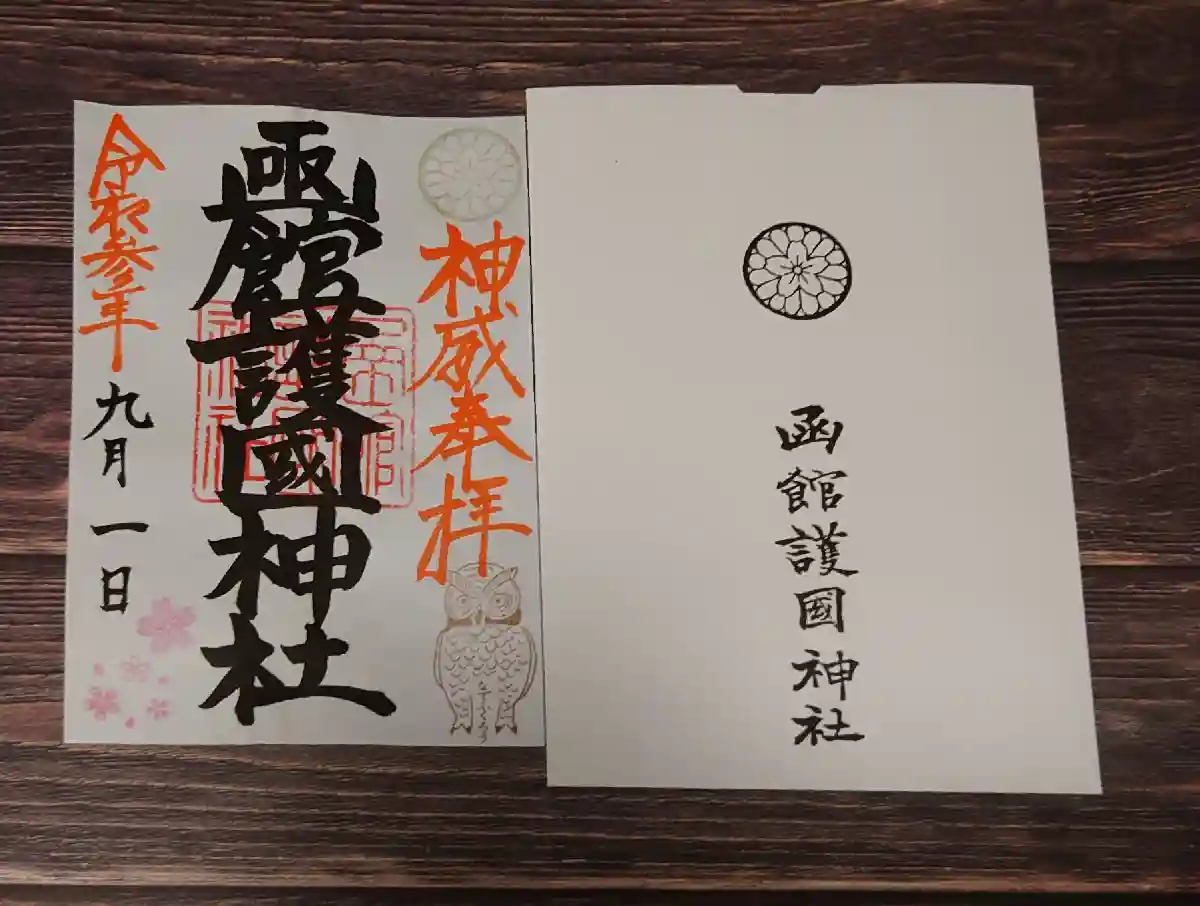 神威奉拝
函館護國神社
令和参年九月一日
函館護國神社